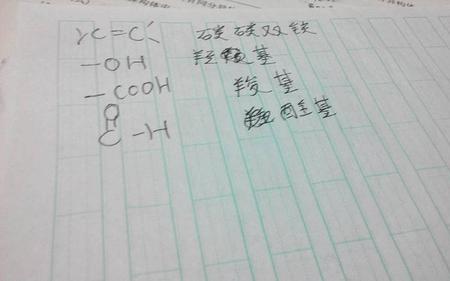 >C=C< 碳碳双键
-OH 羟基
-COOH 羧基
O
C-H 醛基